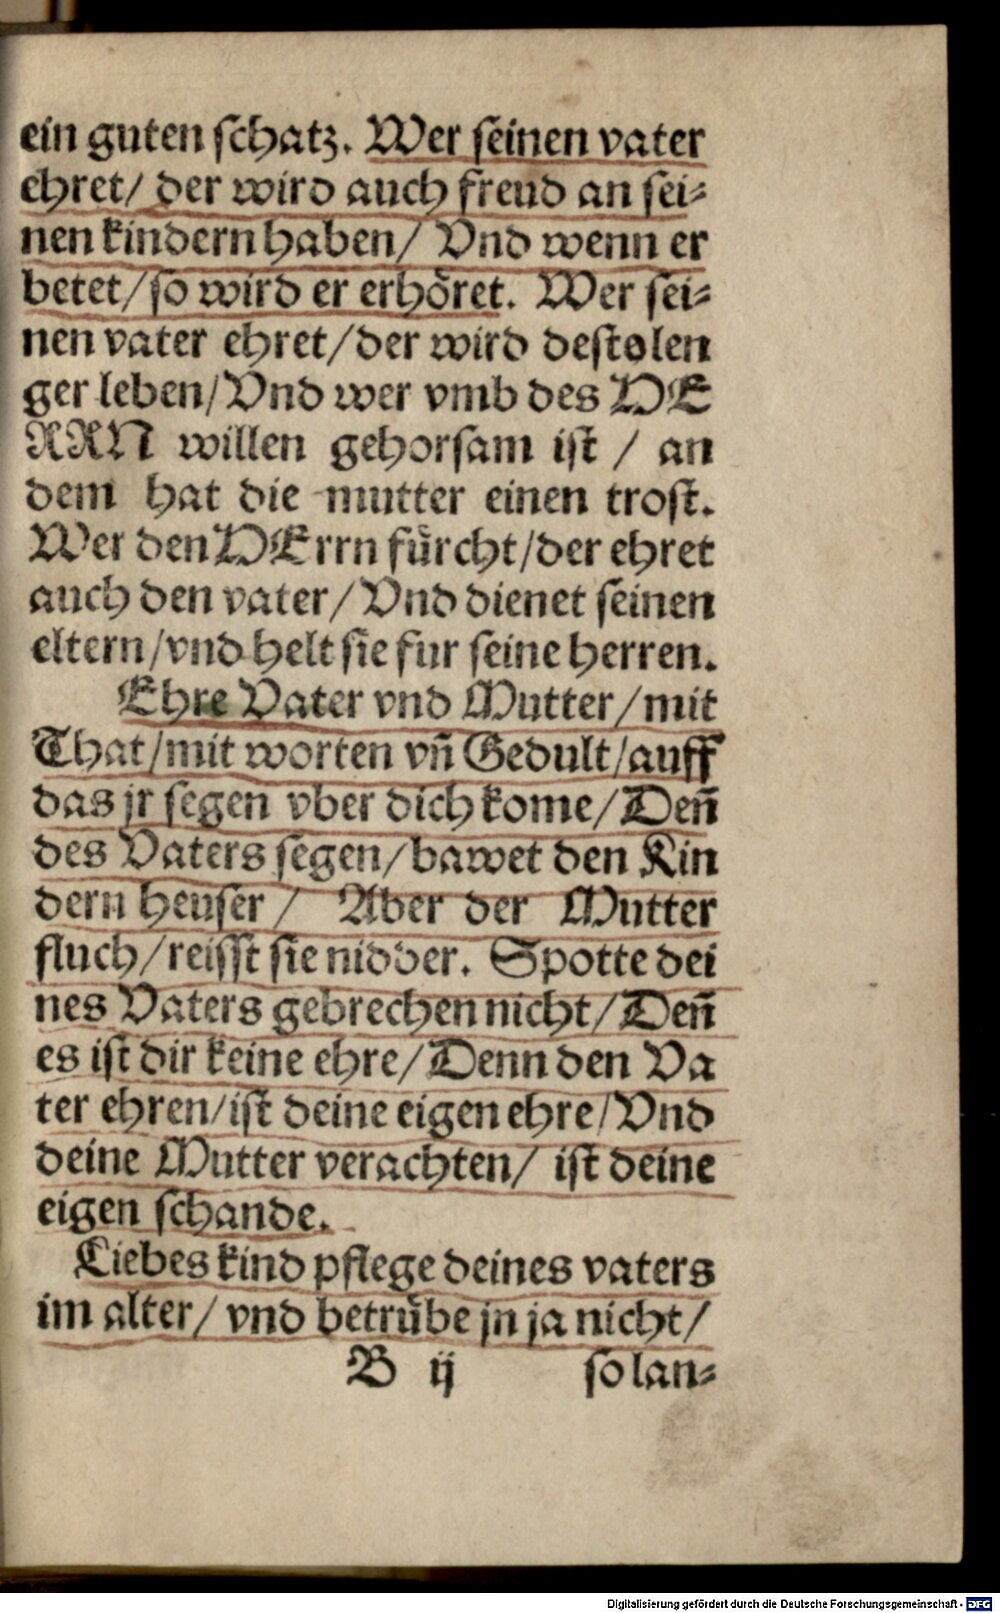 ein guten schatz. Wer seinen vater
ehret/ der wird auch freud an sei⸗
nen kindern haben/ Vnd wenn er
betet/ so wird er erhöret. Wer sei⸗
nen vater ehret/ der wird desto len
ger leben/ Vnd wer vmb des HE
RRN willen gehorsam ist / an
dem hat die mutter einen trost.
Wer den HErrn fürcht/ der ehret
auch den vater/ Vnd dienet seinen
eltern/ vnd helt sie fur seine herren.
Ehre Vater vnd Mutter/ mit
That/ mit worten vñ Gedult/ auff
das jr segen vber dich kome/ Deñ
des Vaters segen/ bawet den Kin
dern heuser / Aber der Mutter
fluch/ reisst sie nidder. Spotte dei
nes Vaters gebrechen nicht/ Deñ
es ist dir keine ehre/ Denn den Va
ter ehren/ ist deine eigen ehre/ Vnd
deine Mutter verachten/ ist deine
eigen schande.
Liebes kind pflege deines vaters
im alter/ vnd betrübe jn ja nicht/
B ij so lan⸗
Digitalisierung gefördert durch die Deutsche Forschungsgemeinschaft - DFG